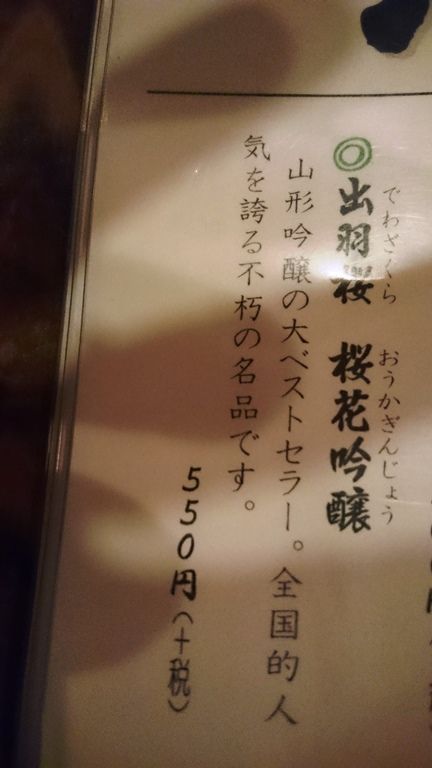 ◎出羽桜 桜花吟醸
でわざくら おうかぎんじょう
山形吟醸の大ベストセラー。全国的人
気を誇る不朽の名品です。
550円(+税)